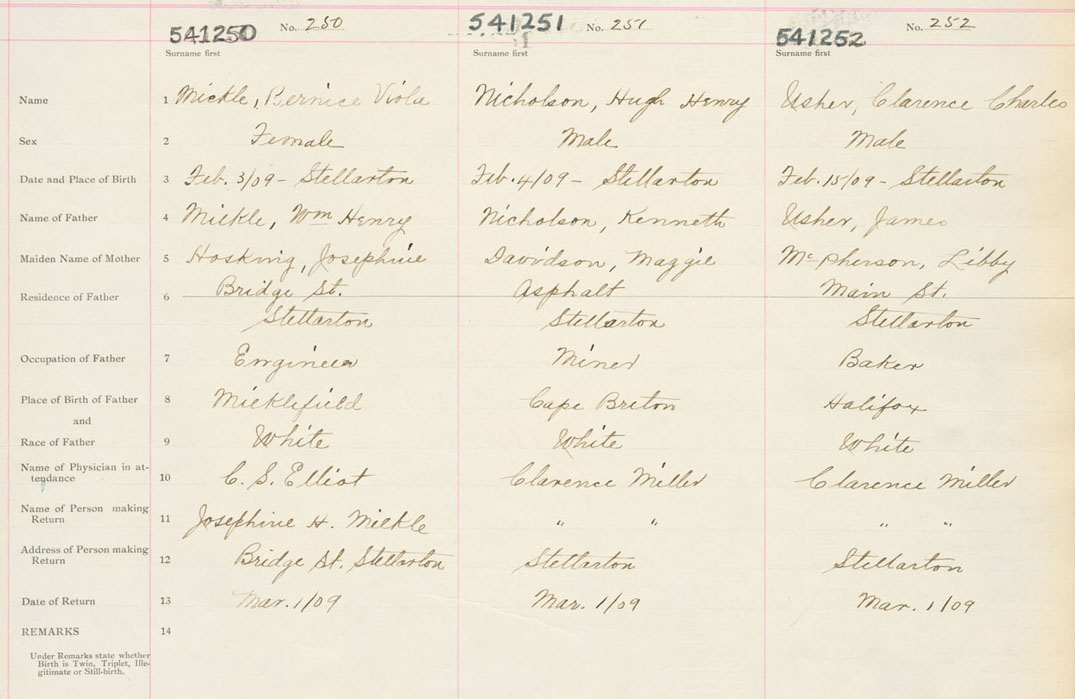 541250 No. 250 541251 No. 251 541252 No. 252
Surname first Surname first Surname first
Name 1 Mickle, Bernice Viola Nicholson, Hugh Henry Usher, Clarence Charles
Sex 2 Female Male Male
Date and Place of Birth 3 Feb. 3/09 - Stellarton Feb. 4/09 - Stellarton Feb. 15/09 - Stellarton
Name of Father 4 Mickle, Wm Henry Nicholson, Kenneth Usher, James
Maiden Name of Mother 5 Hosking, Josephine Davidson, Maggie McPherson, Libby
Residence of Father 6 Bridge St. Asphalt Main St.
Stellarton Stellarton Stellarton
Occupation of Father 7 Engineer Miner Baker
Place of Birth of Father 8 Micklefield Cape Breton Halifax
and
Race of Father 9 White White White
Name of Physician in at-
tendance 10 C. S. Elliot Clarence Miller Clarence Miller
Name of Person making
Return 11 Josephine H. Mickle " " " "
Address of Person making
Return 12 Bridge St. Stellarton Stellarton Stellarton
Date of Return 13 Mar. 1/09 Mar. 1/09 Mar. 1/09
REMARKS 14
Under Remarks state whether
Birth is Twin, Triplet, Ille-
gitimate or Still-birth.